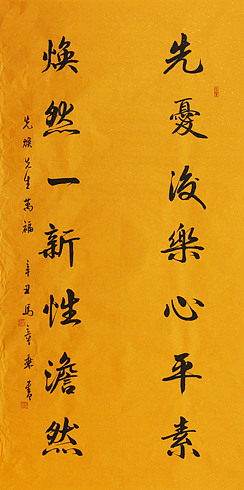 先憂後樂心平素
煥然一新性澹然
先煥先生萬福
辛丑馬